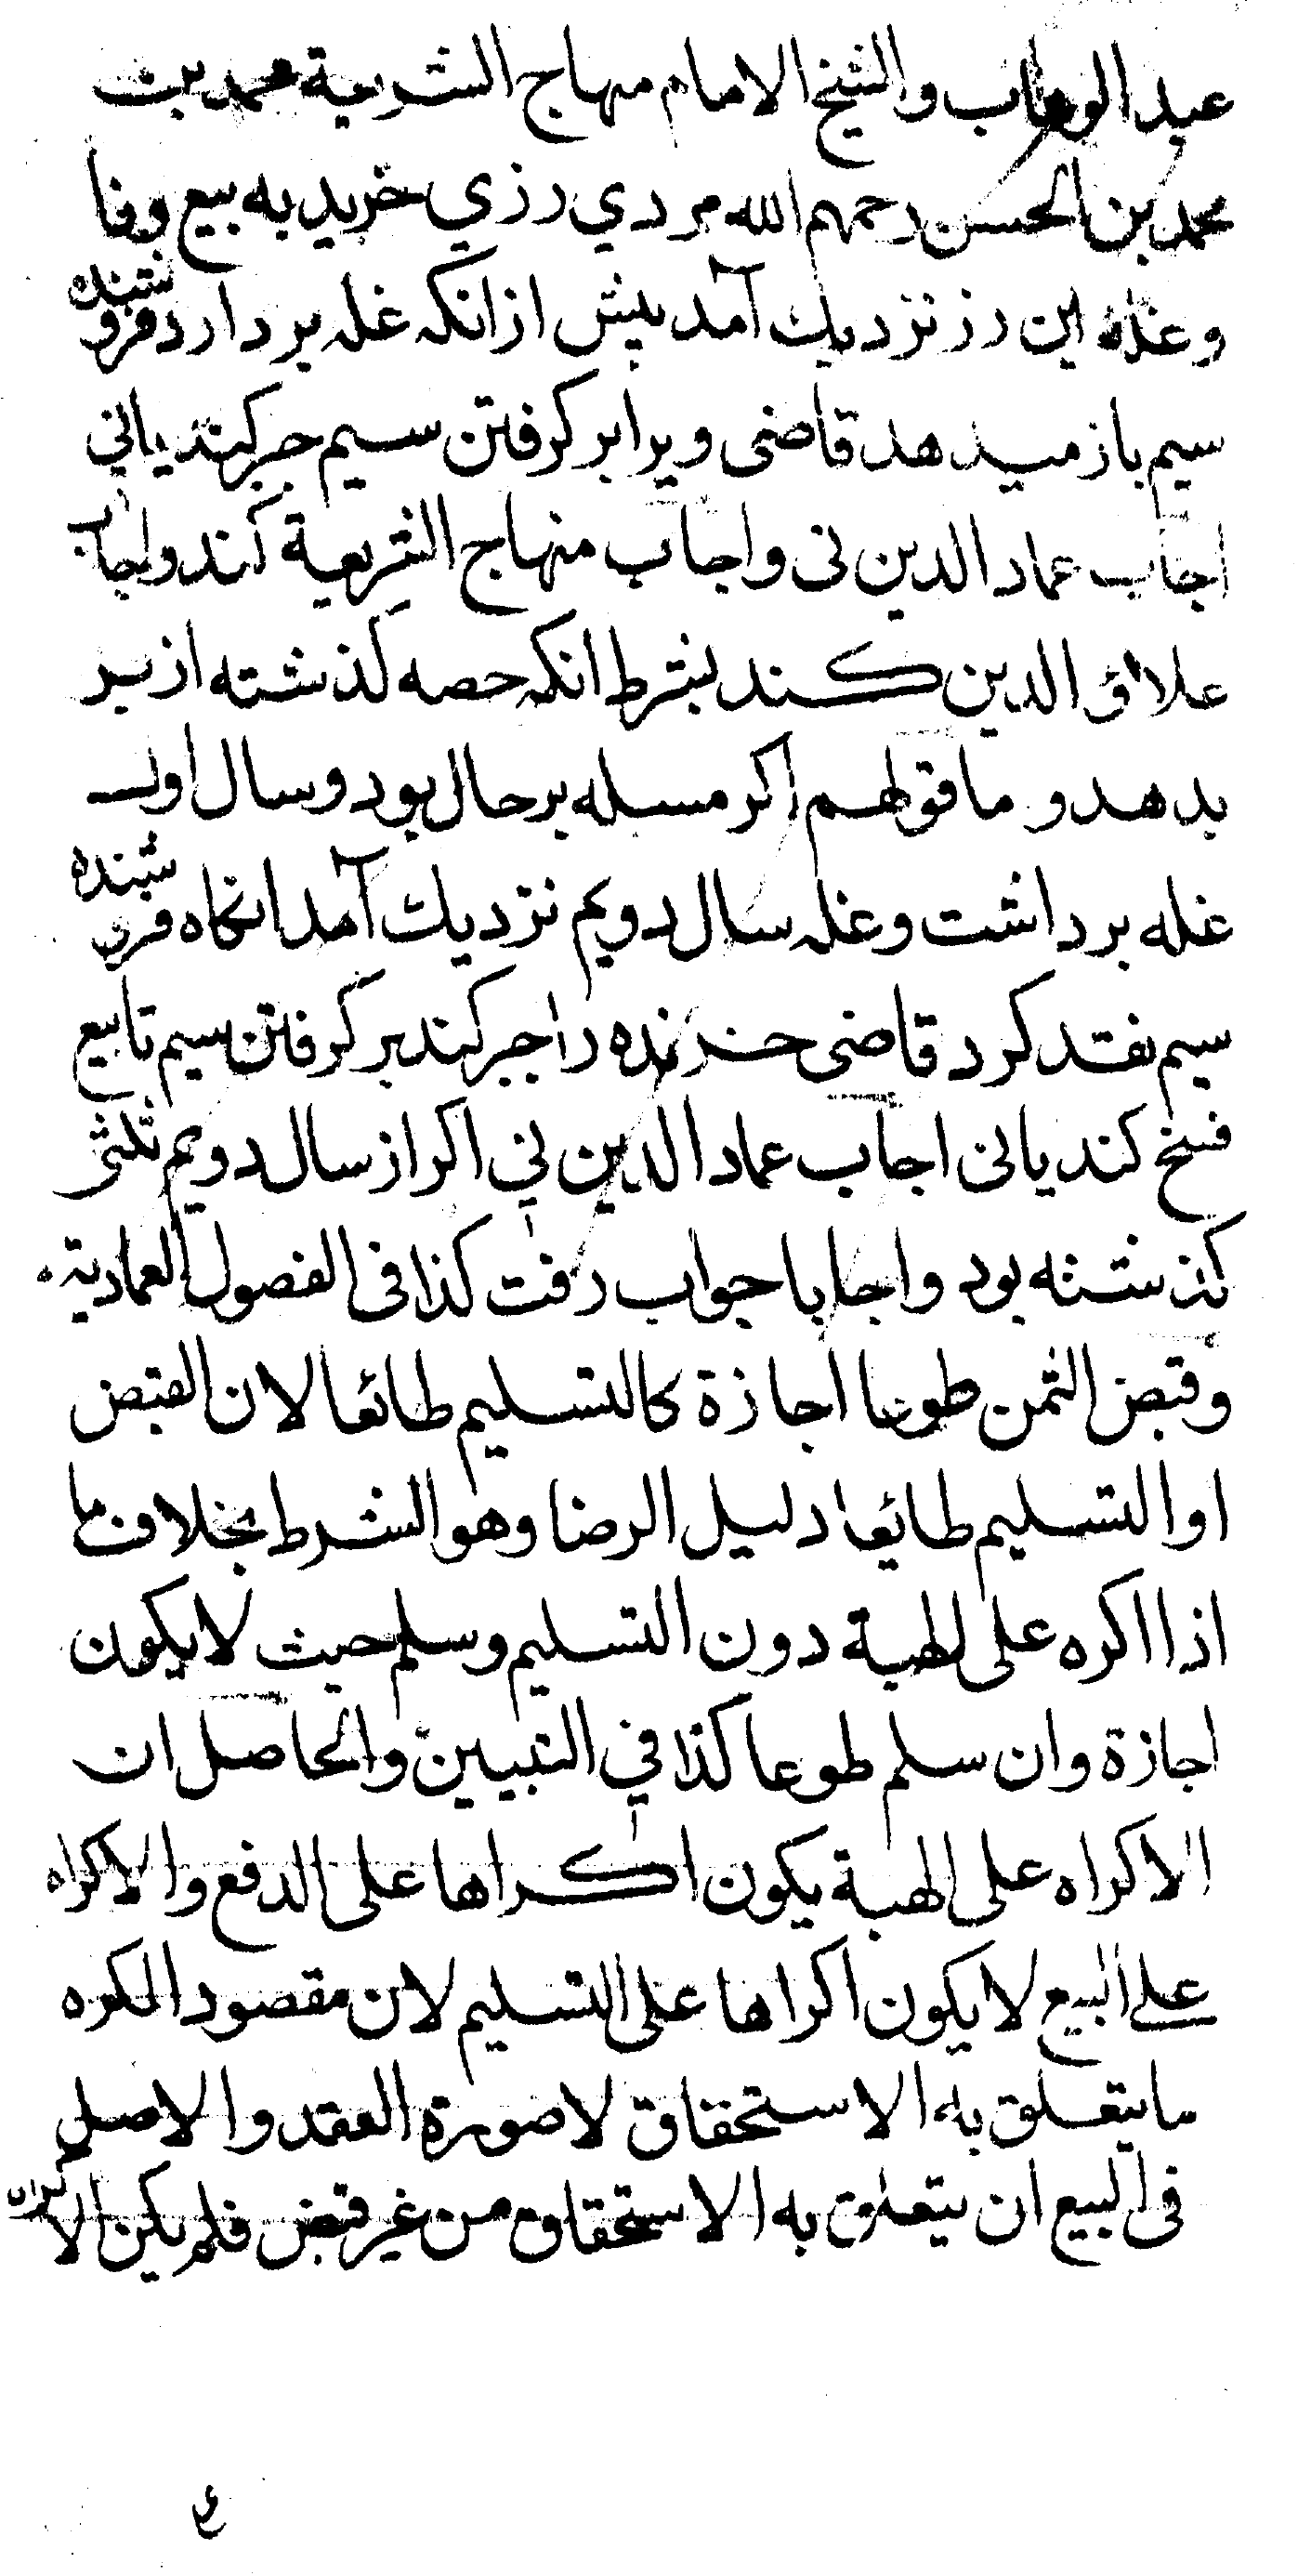 عبد الوهاب والشيخ الامام منهاج الشريعة محمد بن
محمد بن الحسن رحمهم الله مردي رزي خريد به بيع وفا
وغله اين رز نزديك آمد پيش ازانكه غله بردارد فروشنده
سيم باز ميدهد قاضى ويرا بر كرفتن سيم جبر كند يانى
اجاب عماد الدين نى واجاب منهاج الشريعة كند واجاب
علاؤ الدين كند بشرط انكه حصه كذشته از بر
بدهد و ما قولهم اكر مسله بر حال بود وسال اول
غله برداشت وغله سال دويم نزديك آمد انكاه فروشنده
سيم نقد كرد قاضى خرنده را جبر كند بر كرفتن سيم تا بيع
فسخ كند يانى اجاب عماد الدين نى اكر از سال دويم ثلثى
كذشته بود واجابا جواب رفت كذا فى الفصول العمادية
وقبض الثمن طوعا اجازة كالتسليم طائعا لان القبض
او التسليم طائعا دليل الرضا وهو الشرط بخلاف ما
اذا اكره على الهبة دون التسليم وسلم حيث لا يكون
اجازة وان سلم طوعا كذا في التبيين والحاصل ان
الاكراه على الهبة يكون اكراها على الدفع والاكراه
على البيع لا يكون اكراها على التسليم لان مقصود المكره
ما يتعلق به الاستحقاق لا صورة العقد والاصل
فى البيع ان يتعلق به الاستحقاق من غير قبض فلم يكن الاكراه